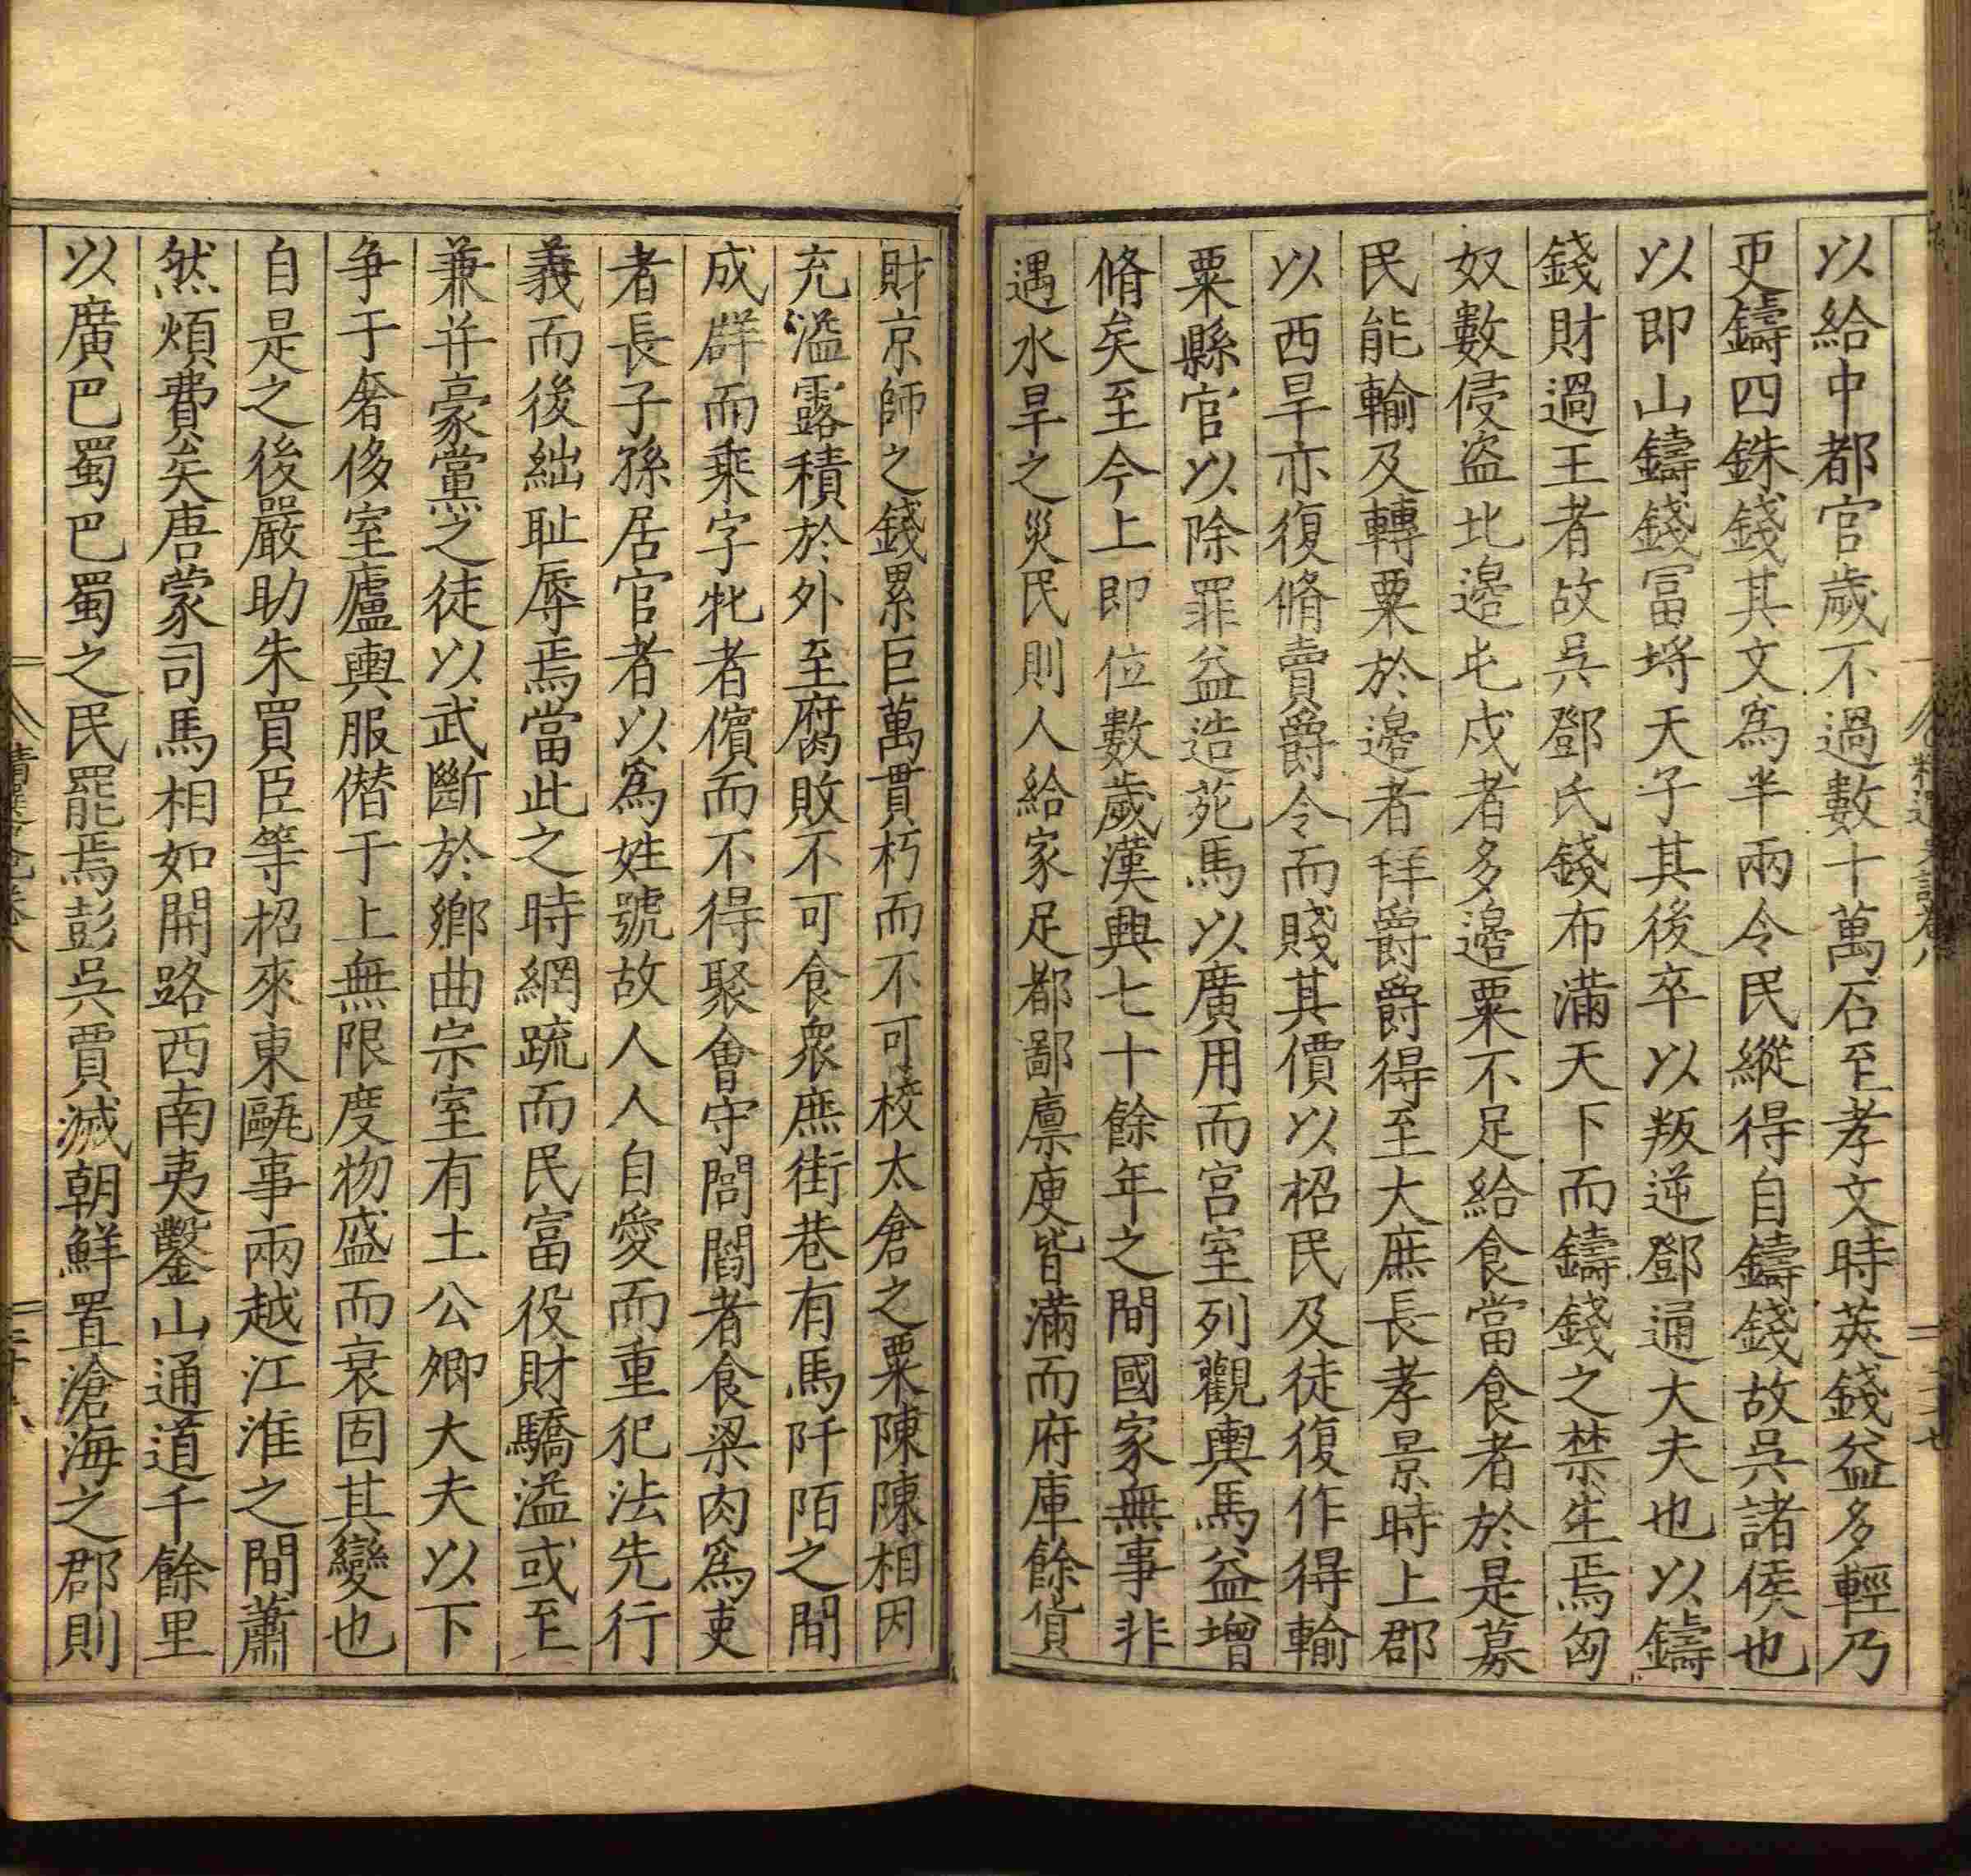 以給中都官歲不過數十萬石至孝文時莢錢益多輕乃
更鑄四銖錢其文爲半兩令民縱得自鑄錢故吳諸侯也
以即山鑄錢富埒天子其後卒以叛逆鄧通大夫也以鑄
錢財過王者故吳鄧氏錢布滿天下而鑄錢之禁生焉匈
奴數侵盗北邉屯戍者多邉粟不足給食當食者於是募
民能輸及轉粟於邉者拜爵爵得至大庶長孝景時上郡
以西旱亦復脩賣爵令而賤其價以招民及徒復作得輸
粟縣官以除罪益造苑馬以廣用而宮室列觀輿馬益增
脩矣至今上即位數歲漢興七十餘年之間國家無事非
遇水旱之災民則人給家足都鄙廪庾皆滿而府庫餘貨
財京師之錢累巨萬貫朽而不可校太倉之粟陳陳相因
充溢露積於外至腐敗不可食衆庶街巷有馬阡陌之間
成群而乘字牝者儐而不得聚會守閭閻者食粱肉爲吏
者長子孫居官者以爲姓號故人人自愛而重犯法先行
義而後絀耻辱焉當此之時網疏而民富役財驕溢或至
兼并豪黨之徒以武斷於鄉曲宗室有土公卿大夫以下
争于奢侈室廬輿服僣于上無限度物盛而衰固其變也
自是之後嚴助朱買臣等招來東甌事兩越江淮之間蕭
然煩費矣唐蒙司馬相如開路西南夷鑿山通道千餘里
以廣巴蜀巴蜀之民罷焉彭吳賈滅朝鮮置滄海之郡則